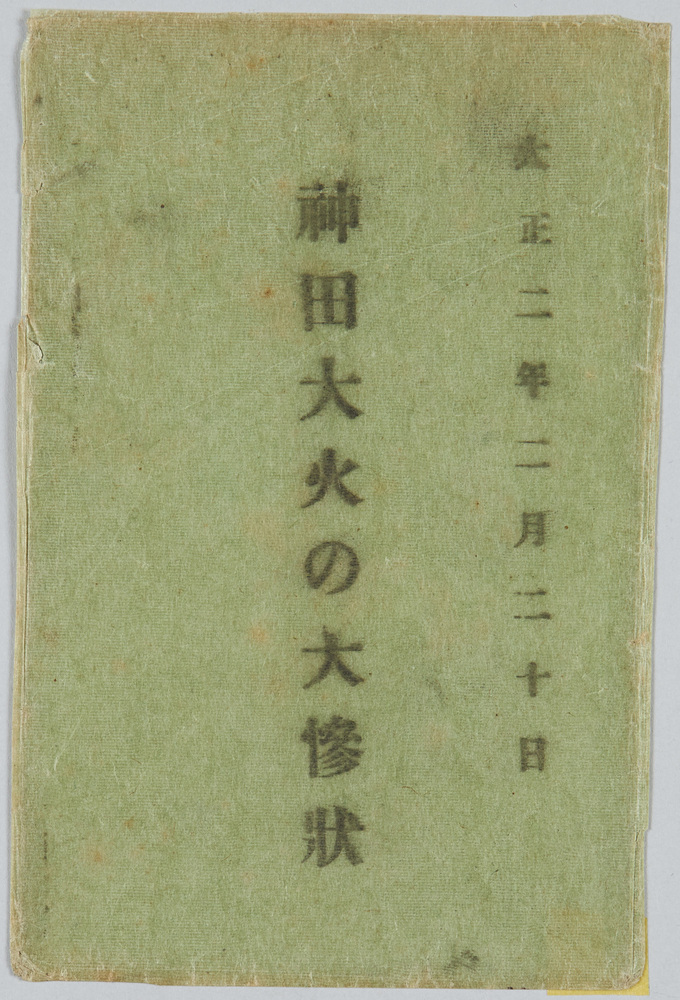 大正二年二月二十日
神田大火の大慘狀